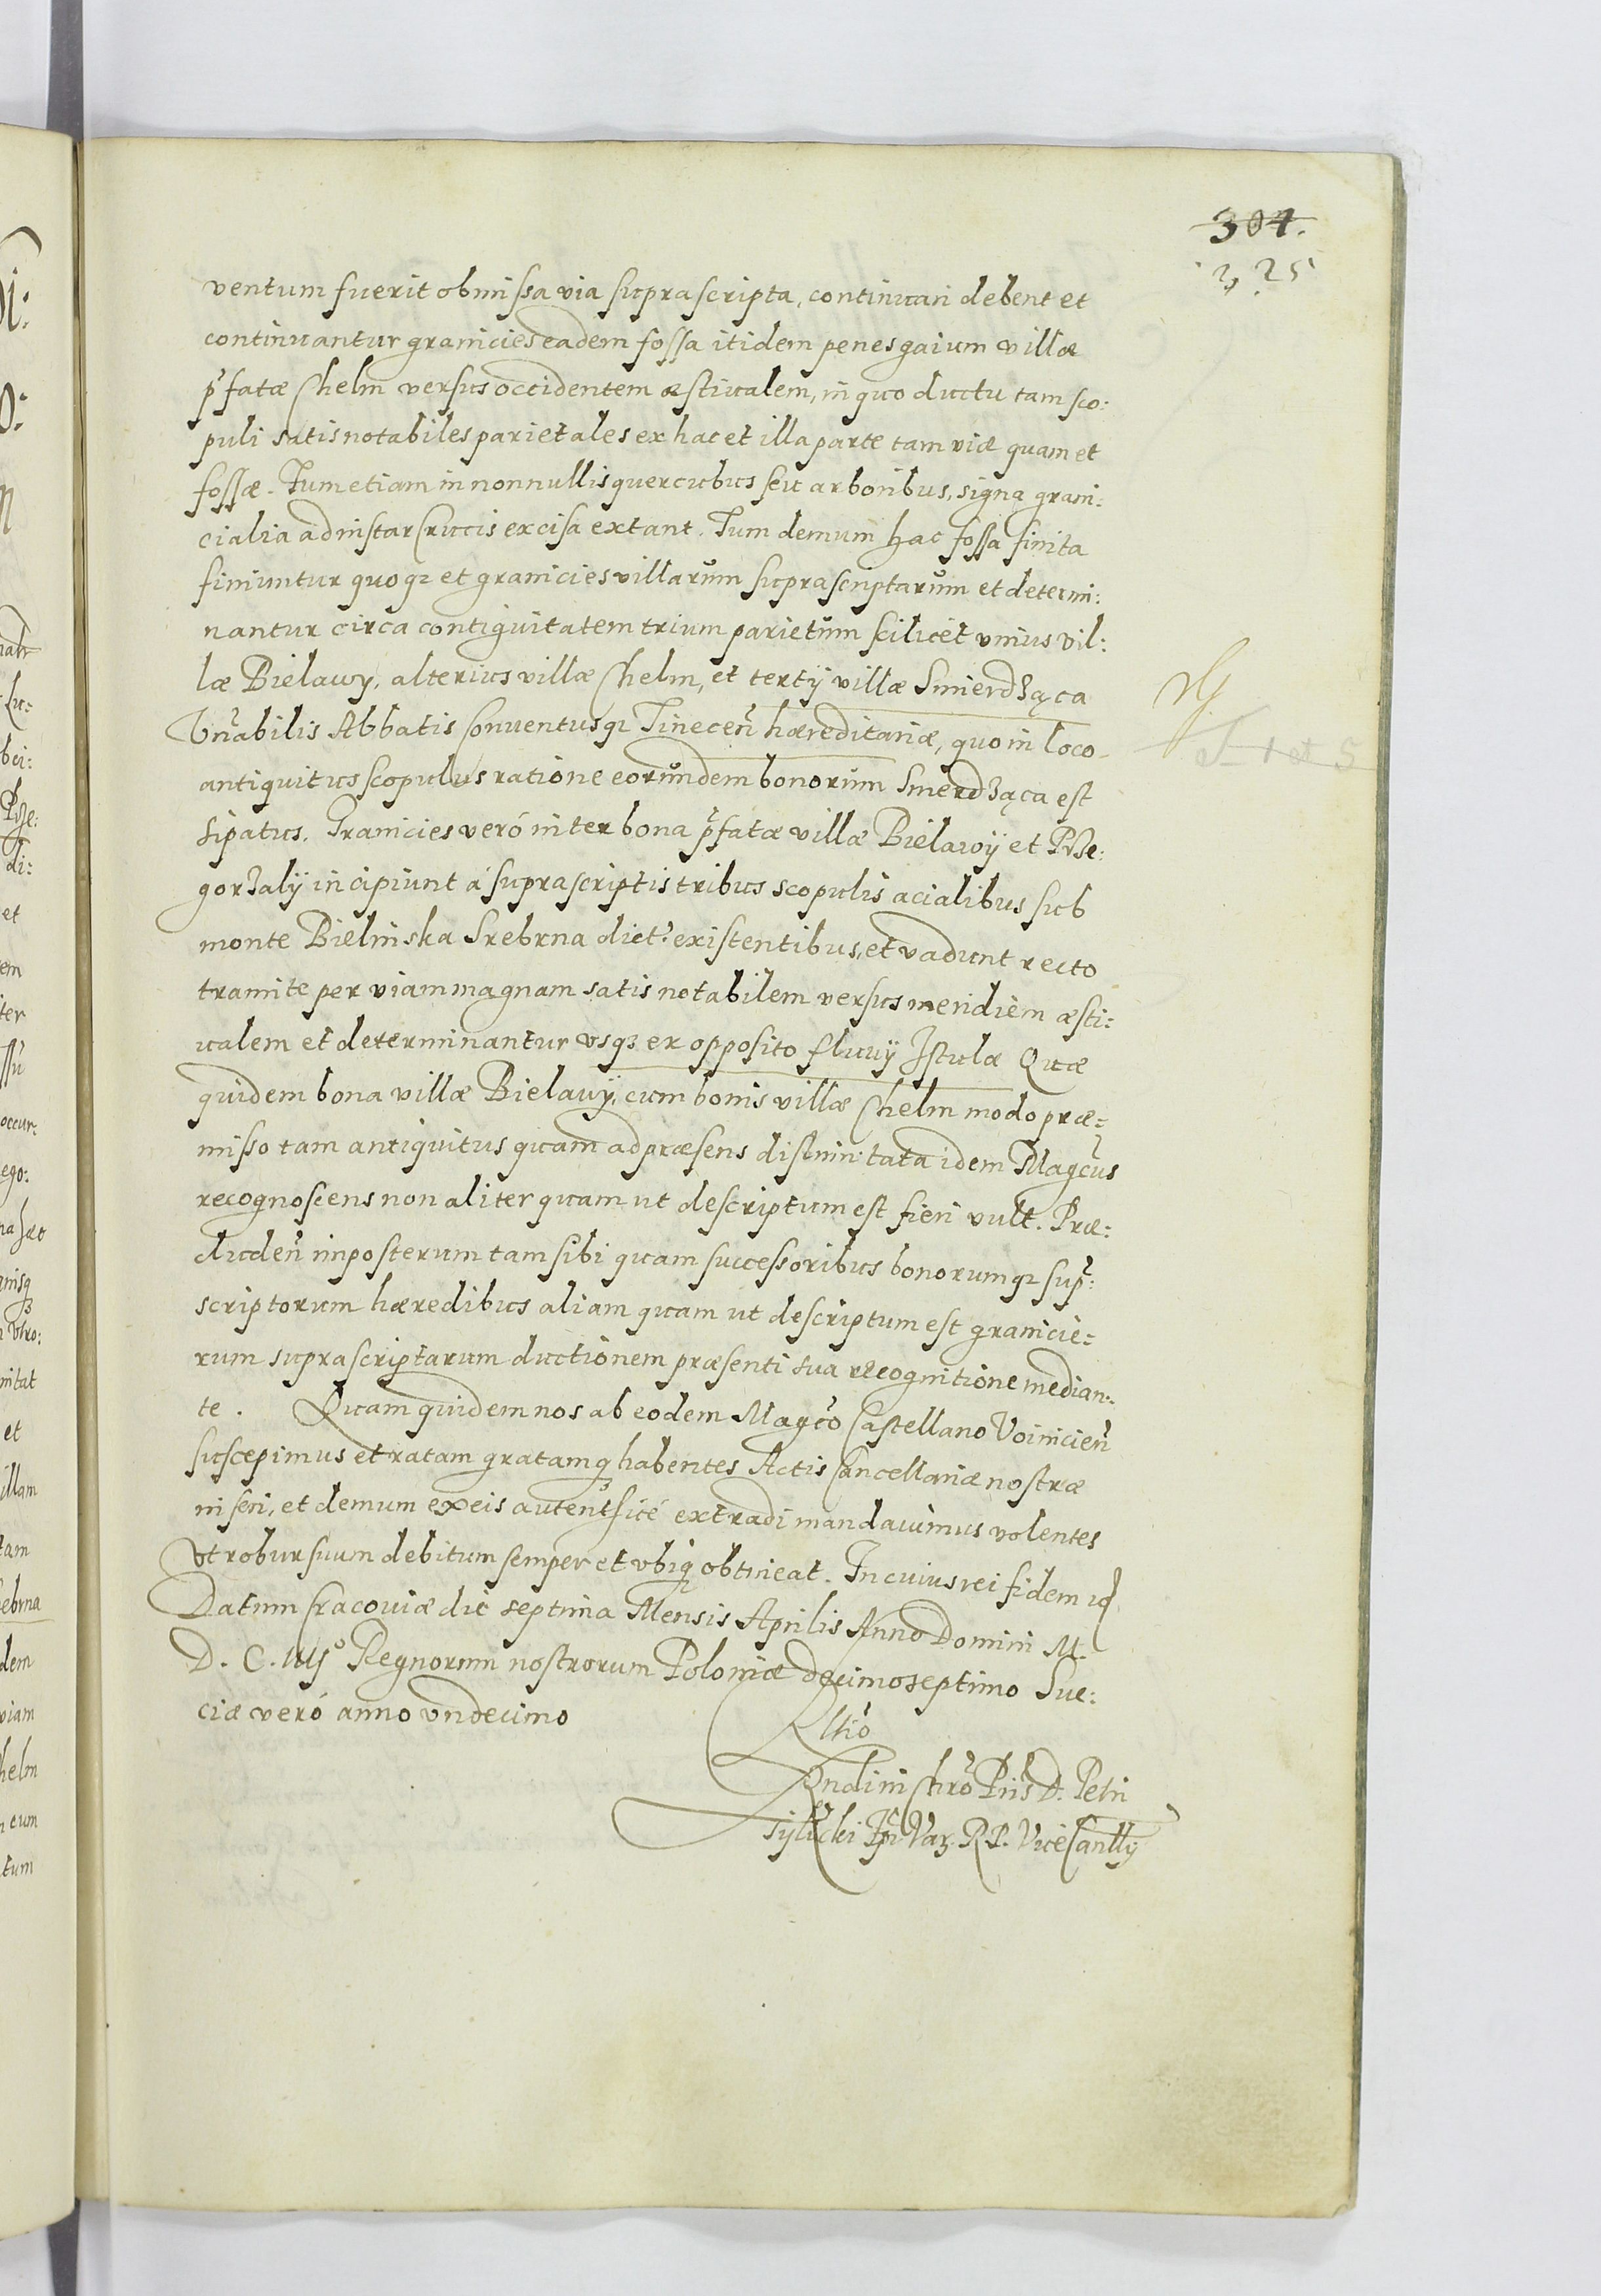 304.
325
ventum fuerit obmissa via suprascripta, continuari debent et
continuantur granicies eadem fossa itidem penes gaium villæ
p̃fatæ Chelm versus occidentem æstivalem, in quo ductu tam sco:
puli satis notabiles parietales ex hac et illa parte tam viæ quam et
fossæ. Tum etiam in nonnullis quercubus seu arboribus, signa grani:
cialia ad instar Crucis excisa extant. Tum demum hac fossa finita
finiuntur quoqꝫ et granicies villarum suprascriptarum et determi:
nantur circa contiguitatem trium parietum scilicet unius vil:
læ Bielawy, alterius villæ Chelm, et tertÿ villæ Smierdząca
Vñabilis Abbatis Conventusqꝫ Tinecen̄ hæreditariæ, quo in loco
antiquitus scopulus ratione eorundem bonorum Smerdząca est
sipatus. Granicies veró inter bona p̃fatæ villæ Bielawÿ et Prze:
gorzalÿ incipiunt á suprascriptis tribus scopulis acialibus sub
monte Bielinska Srebrna dict: existentibus, et vadunt recto
tramite per viam magnam satis notabilem versus meridiem æsti:
ualem et determinantur usqꝫ ex opposito fluuÿ Istulæ Quæ
quidem bona villæ Bielawÿ, cum bonis villæ Chelm modo præ:
misso tam antiquitus quam ad præsens distinitata idem Magc̃us
recognoscens non aliter quam ut descriptum est fieri vult. Præ:
cluden̄ inposterum tam sibi quam successoribus bonorumqꝫ sup̃:
scriptorum hæredibus aliam quam ut descriptum est granicie:
rum suprascriptarum ductionem præsenti sua recognitione median:
te. Quam quidem nos ab eodem Magc̃o Castellano Voinicien̄
suscepimus et ratam gratamqꝫ habentes Actis Cancellariæ nostræ
inseri, et demum ex eis autenticé extradi mandauimus volentes
Ut robur suum debitum semper et ubiqꝫ obtineat. In cuius rei fidem
Datum Cracoviæ die septima Mensis Aprilis Anno Domini M.
D. C. IIIIº Regnorum nostrorum Poloniæ decimoseptimo Sue:
ciæ veró anno undecimo
Rltió
Rndi in Chr̃o Pris D. Petri
Tylicki R. P. Vice Cantly